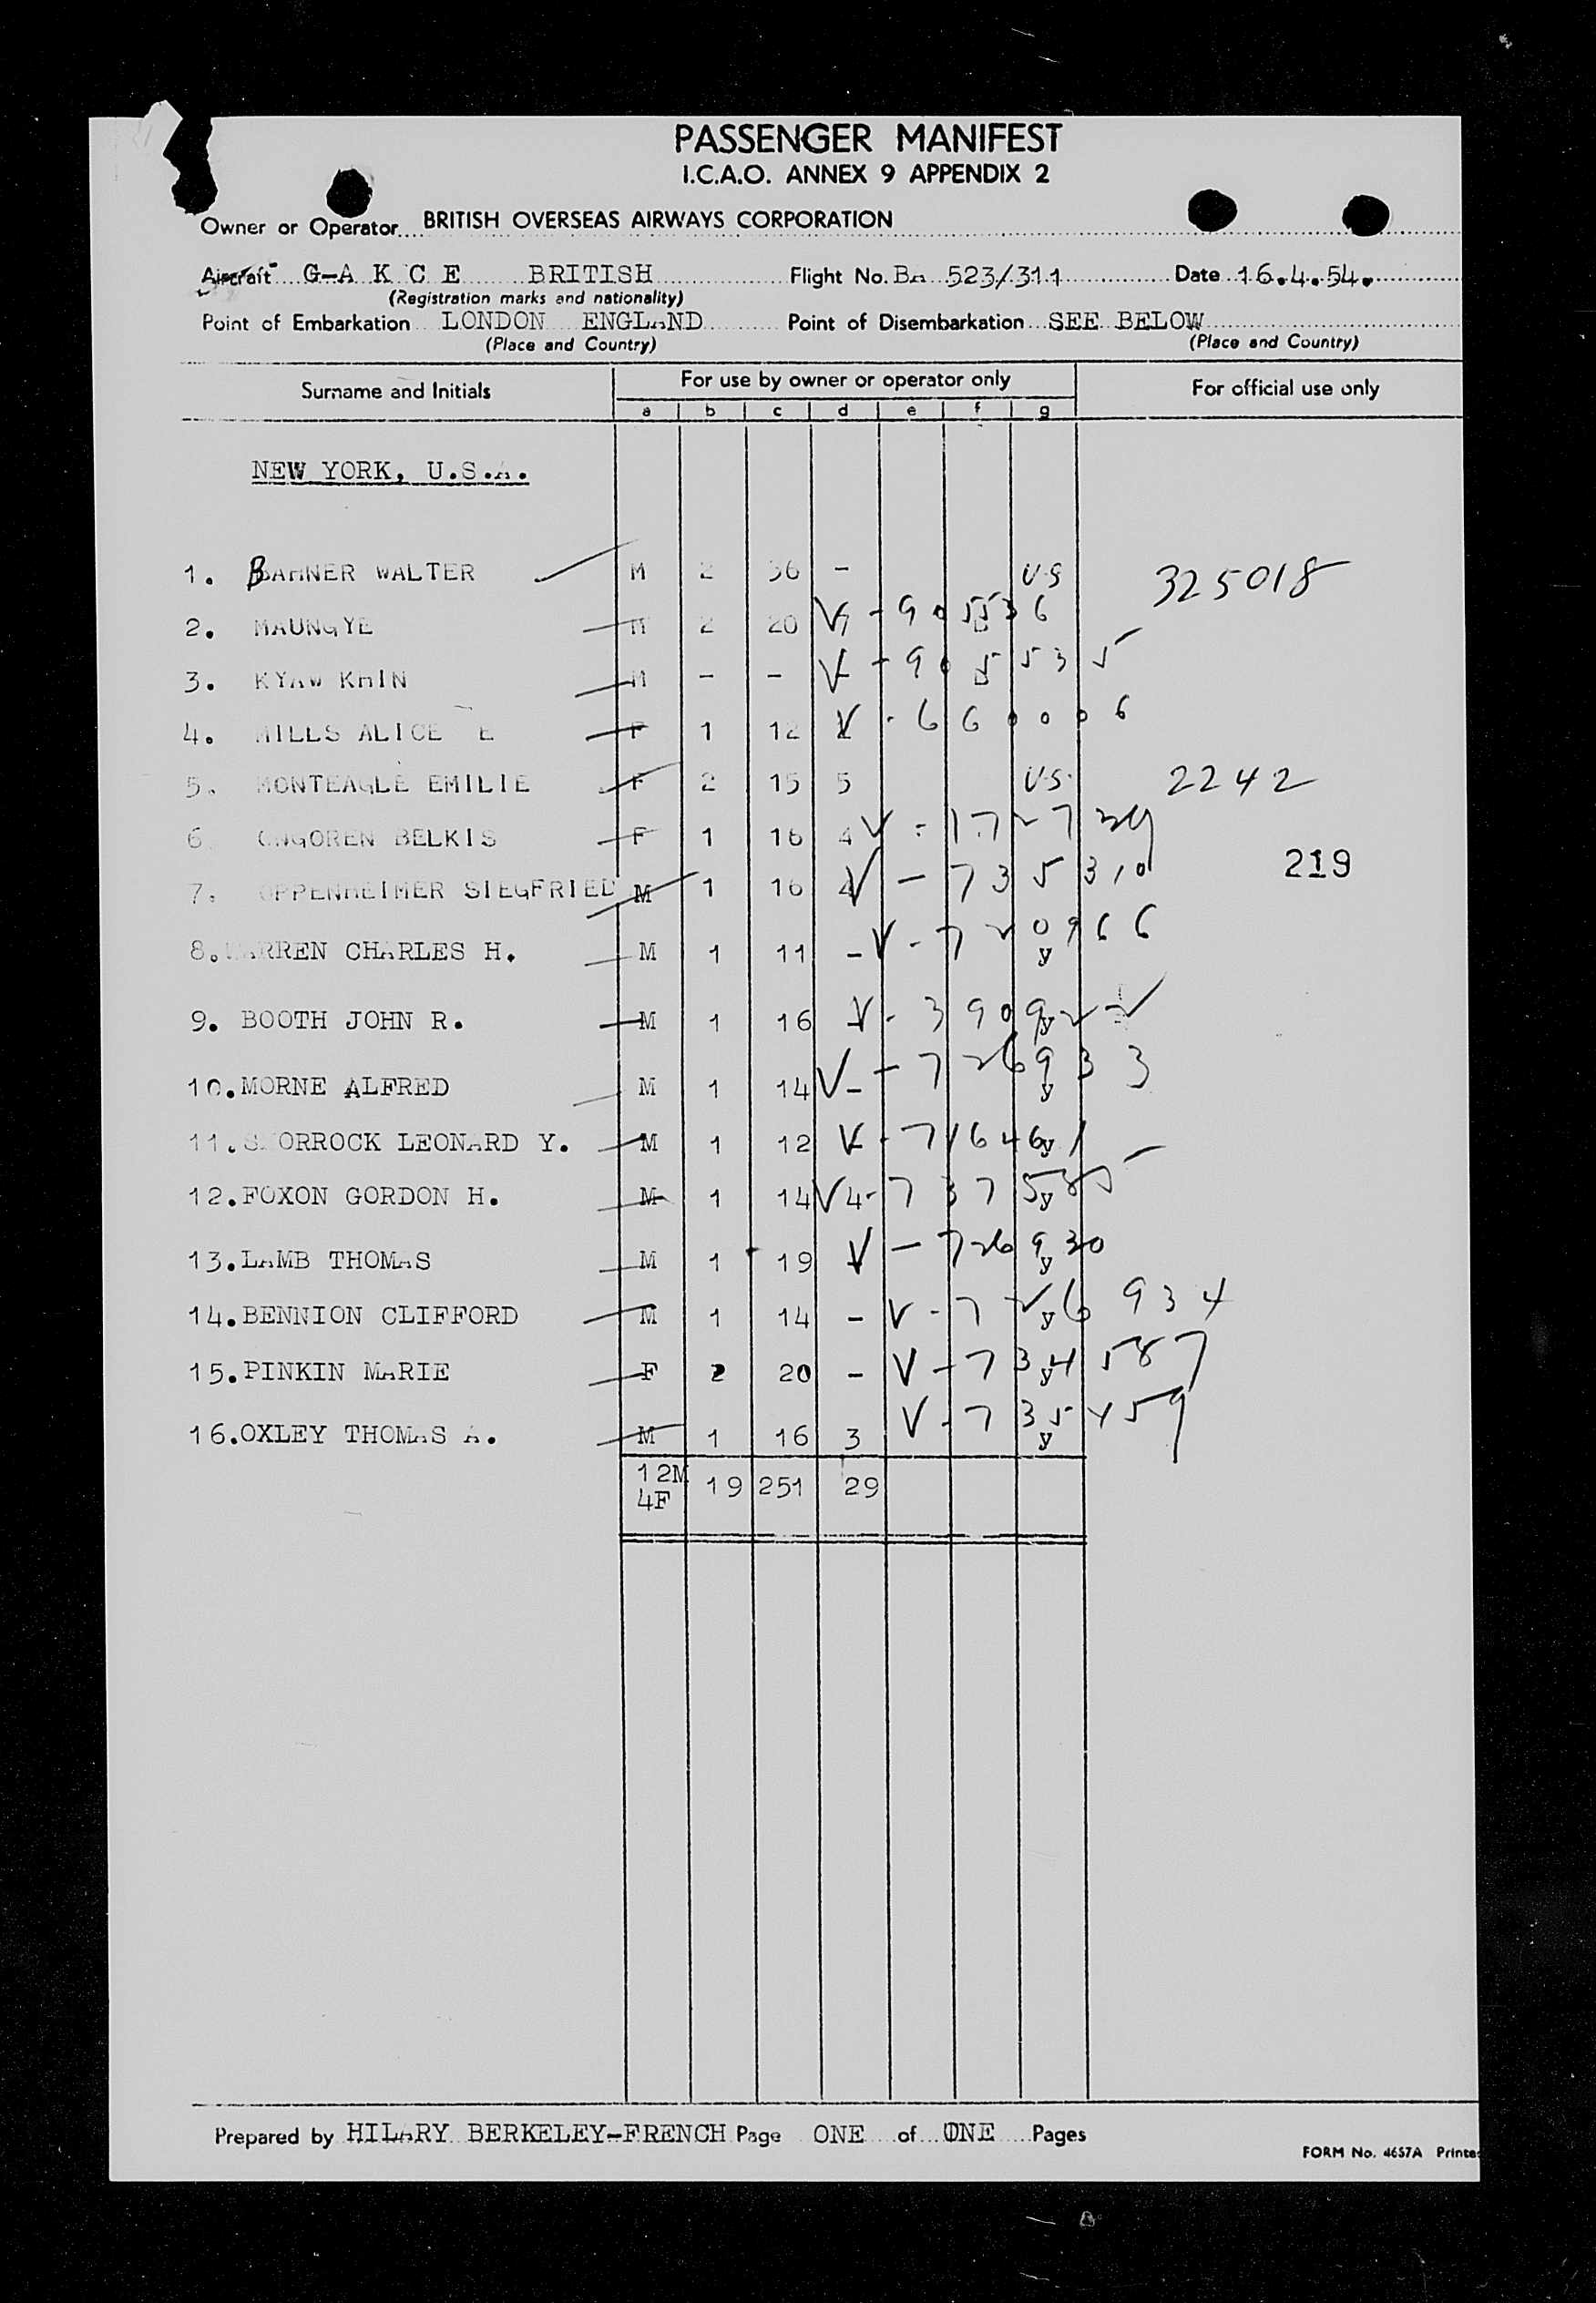 PASSENGER MANIFEST
I.C.A.O. ANNEX 9 APPENDIX 2
Owner or Operator BRITISH OVERSEAS AIRWAYS CORPORATION
Aircraft G-A K C E BRITISH Flight No. BA 523/311 Date 16.4.54.
(Registration marks and nationality)
Point of Embarkation LONDON ENGLAND Point of Disembarkation SEE BELOW
(Place and Country) (Place and Country)
Surname and Initials For use by owner or operator only For official use only
a b c d e f g
NEW YORK, U.S.A.
1. BAHNER WALTER M 2 36 - U.S 325018
2. MAUNGYE M 2 20 V - 905536
3. KYAW KHIN M - - V - 905535
4. MILLS ALICE E F 1 12 V - 660006
5. MONTEAGLE EMILIE F 2 15 5 U.S. 2242
6. ONGOREN BELKIS F 1 16 4 V -
219
7. OPPENHEIMER SIEGFRIED M 1 16 V - 735310
8. WARREN CHARLES H. M 1 11 - V - 720966 y
9. BOOTH JOHN R. M 1 16 V - 390922 y
10. MORNE ALFRED M 1 14 - V - 726933 y
11. SHORROCK LEONARD Y. M 1 12 V - 716461 y
12. FOXON GORDON H. M 1 14 4 V - 737585 y
13. LAMB THOMAS M 1 19 V - 726930 y
14. BENNION CLIFFORD M 1 14 - V - 726934 y
15. PINKIN MARIE F 2 20 - V - 734587 y
16. OXLEY THOMAS A. M 1 16 3 V - 735459 y
12M 19 251 29
4F
Prepared by HILARY BERKELEY-FRENCH Page ONE of ONE Pages
FORM No. 4657A